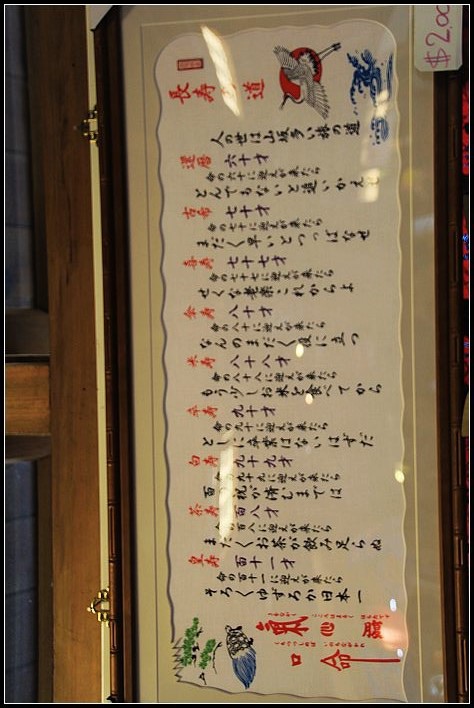 長寿の道
人の世は山坂多い旅の道
還暦 六十才
命の六十に迎えが来たら
とんでもないと追いかえせ
古希 七十才
命の七十に迎えが来たら
まだまだ早いとつっぱなせ
喜寿 七十七才
命の七十七に迎えが来たら
せくな老楽これからよ
傘寿 八十才
命の八十に迎えが来たら
なんのまだまだ役に立つ
米寿 八十八才
命の八十八に迎えが来たら
もう少しお米を食べてから
卒寿 九十才
命の九十に迎えが来たら
としに卒業はないはずだ
白寿 九十九才
命の九十九に迎えが来たら
百の祝が済むまでは
茶寿 百八才
命の百八に迎えが来たら
まだまだお茶が飲み足らぬ
皇寿 百十一才
命の百十一に迎えが来たら
そろそろゆずろか日本一
氣心
口命
$200